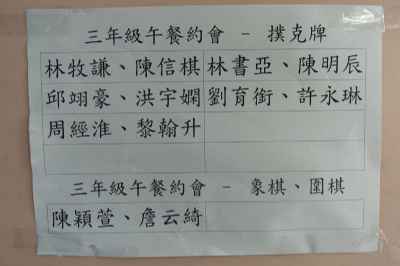 三年級午餐約會 - 撲克牌
林牧謙、陳信棋 林書亞、陳明辰
邱翊豪、洪宇嫻 劉育銜、許永琳
周經淮、黎翰升
三年級午餐約會 - 象棋、圍棋
陳穎萱、詹云綺